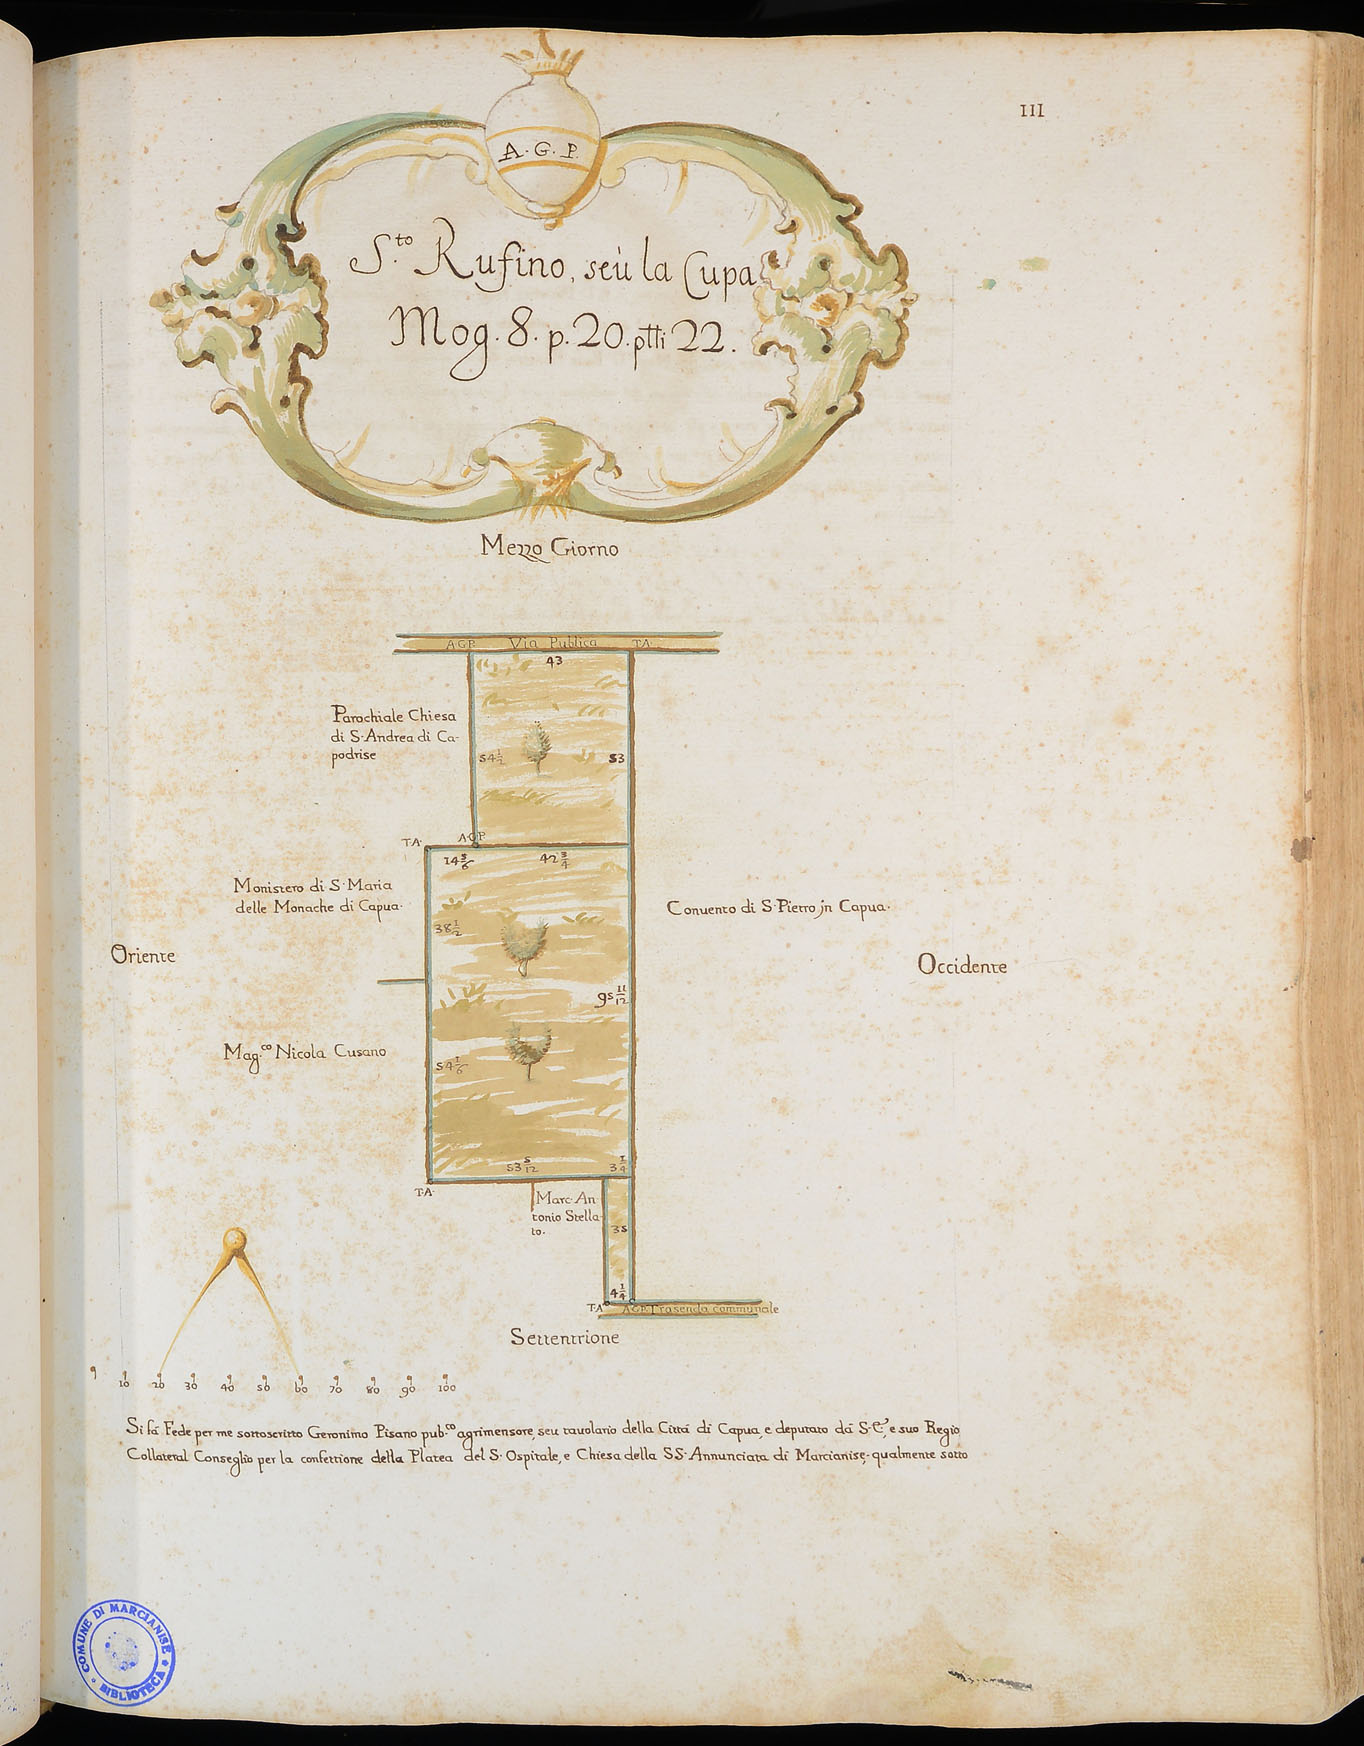 III
A. G. P.
S.to Rufino, seù la Cupa
Mog. 8. p. 20. ptti 22.
Mezzo Giorno
A.G.P. Via Publica T.A.
43
Parochiale Chiesa
di S. Andrea di Ca-
podrise
54 1/2
53
T.A. A.G.P.
14 5/6 42 3/4
Monistero di S. Maria
delle Monache di Capua.
38 1/2
Convento di S. Pietro jn Capua.
Oriente
Occidente
95 11/12
Mag.co Nicola Cusano
54 1/6
53 5/12 3 1/4
T.A.
Marc. An
tonio Stella
to.
35
4 1/4
T.A. A.G.P. Trasenda communale
Settentrione
10 20 30 40 50 60 70 80 90 100
Si fà Fede per me sottoscritto Geronimo Pisano pub.co agrimensore, seu tavolario della Città di Capua, e deputato dà S. E., e suo Regio
Collateral Conseglio per la confettione della Platea del S. Ospitale, e Chiesa della SS. Annunciata di Marcianise, qualmente sotto
COMUNE DI MARCIANISE
BIBLIOTECA